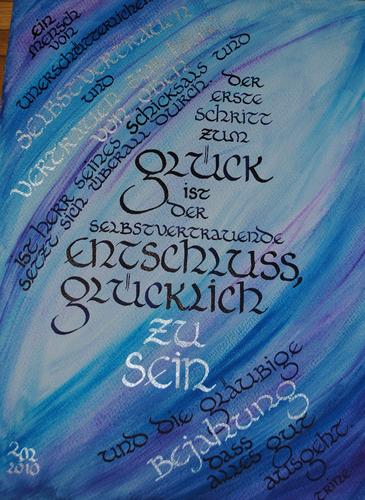 ein
Mensch
von
unerschütterlichem
Selbstvertrauen
und
Vertrauen zum Leben
von oben
ist Herr seines Schicksals und
setzt sich überall durch.
Der
erste
Schritt
zum
Glück
ist
der
selbstvertrauende
Entschluss,
glücklich
zu
sein
und die gläubige
Bejahung
dass
alles gut
ausgeht.
2010